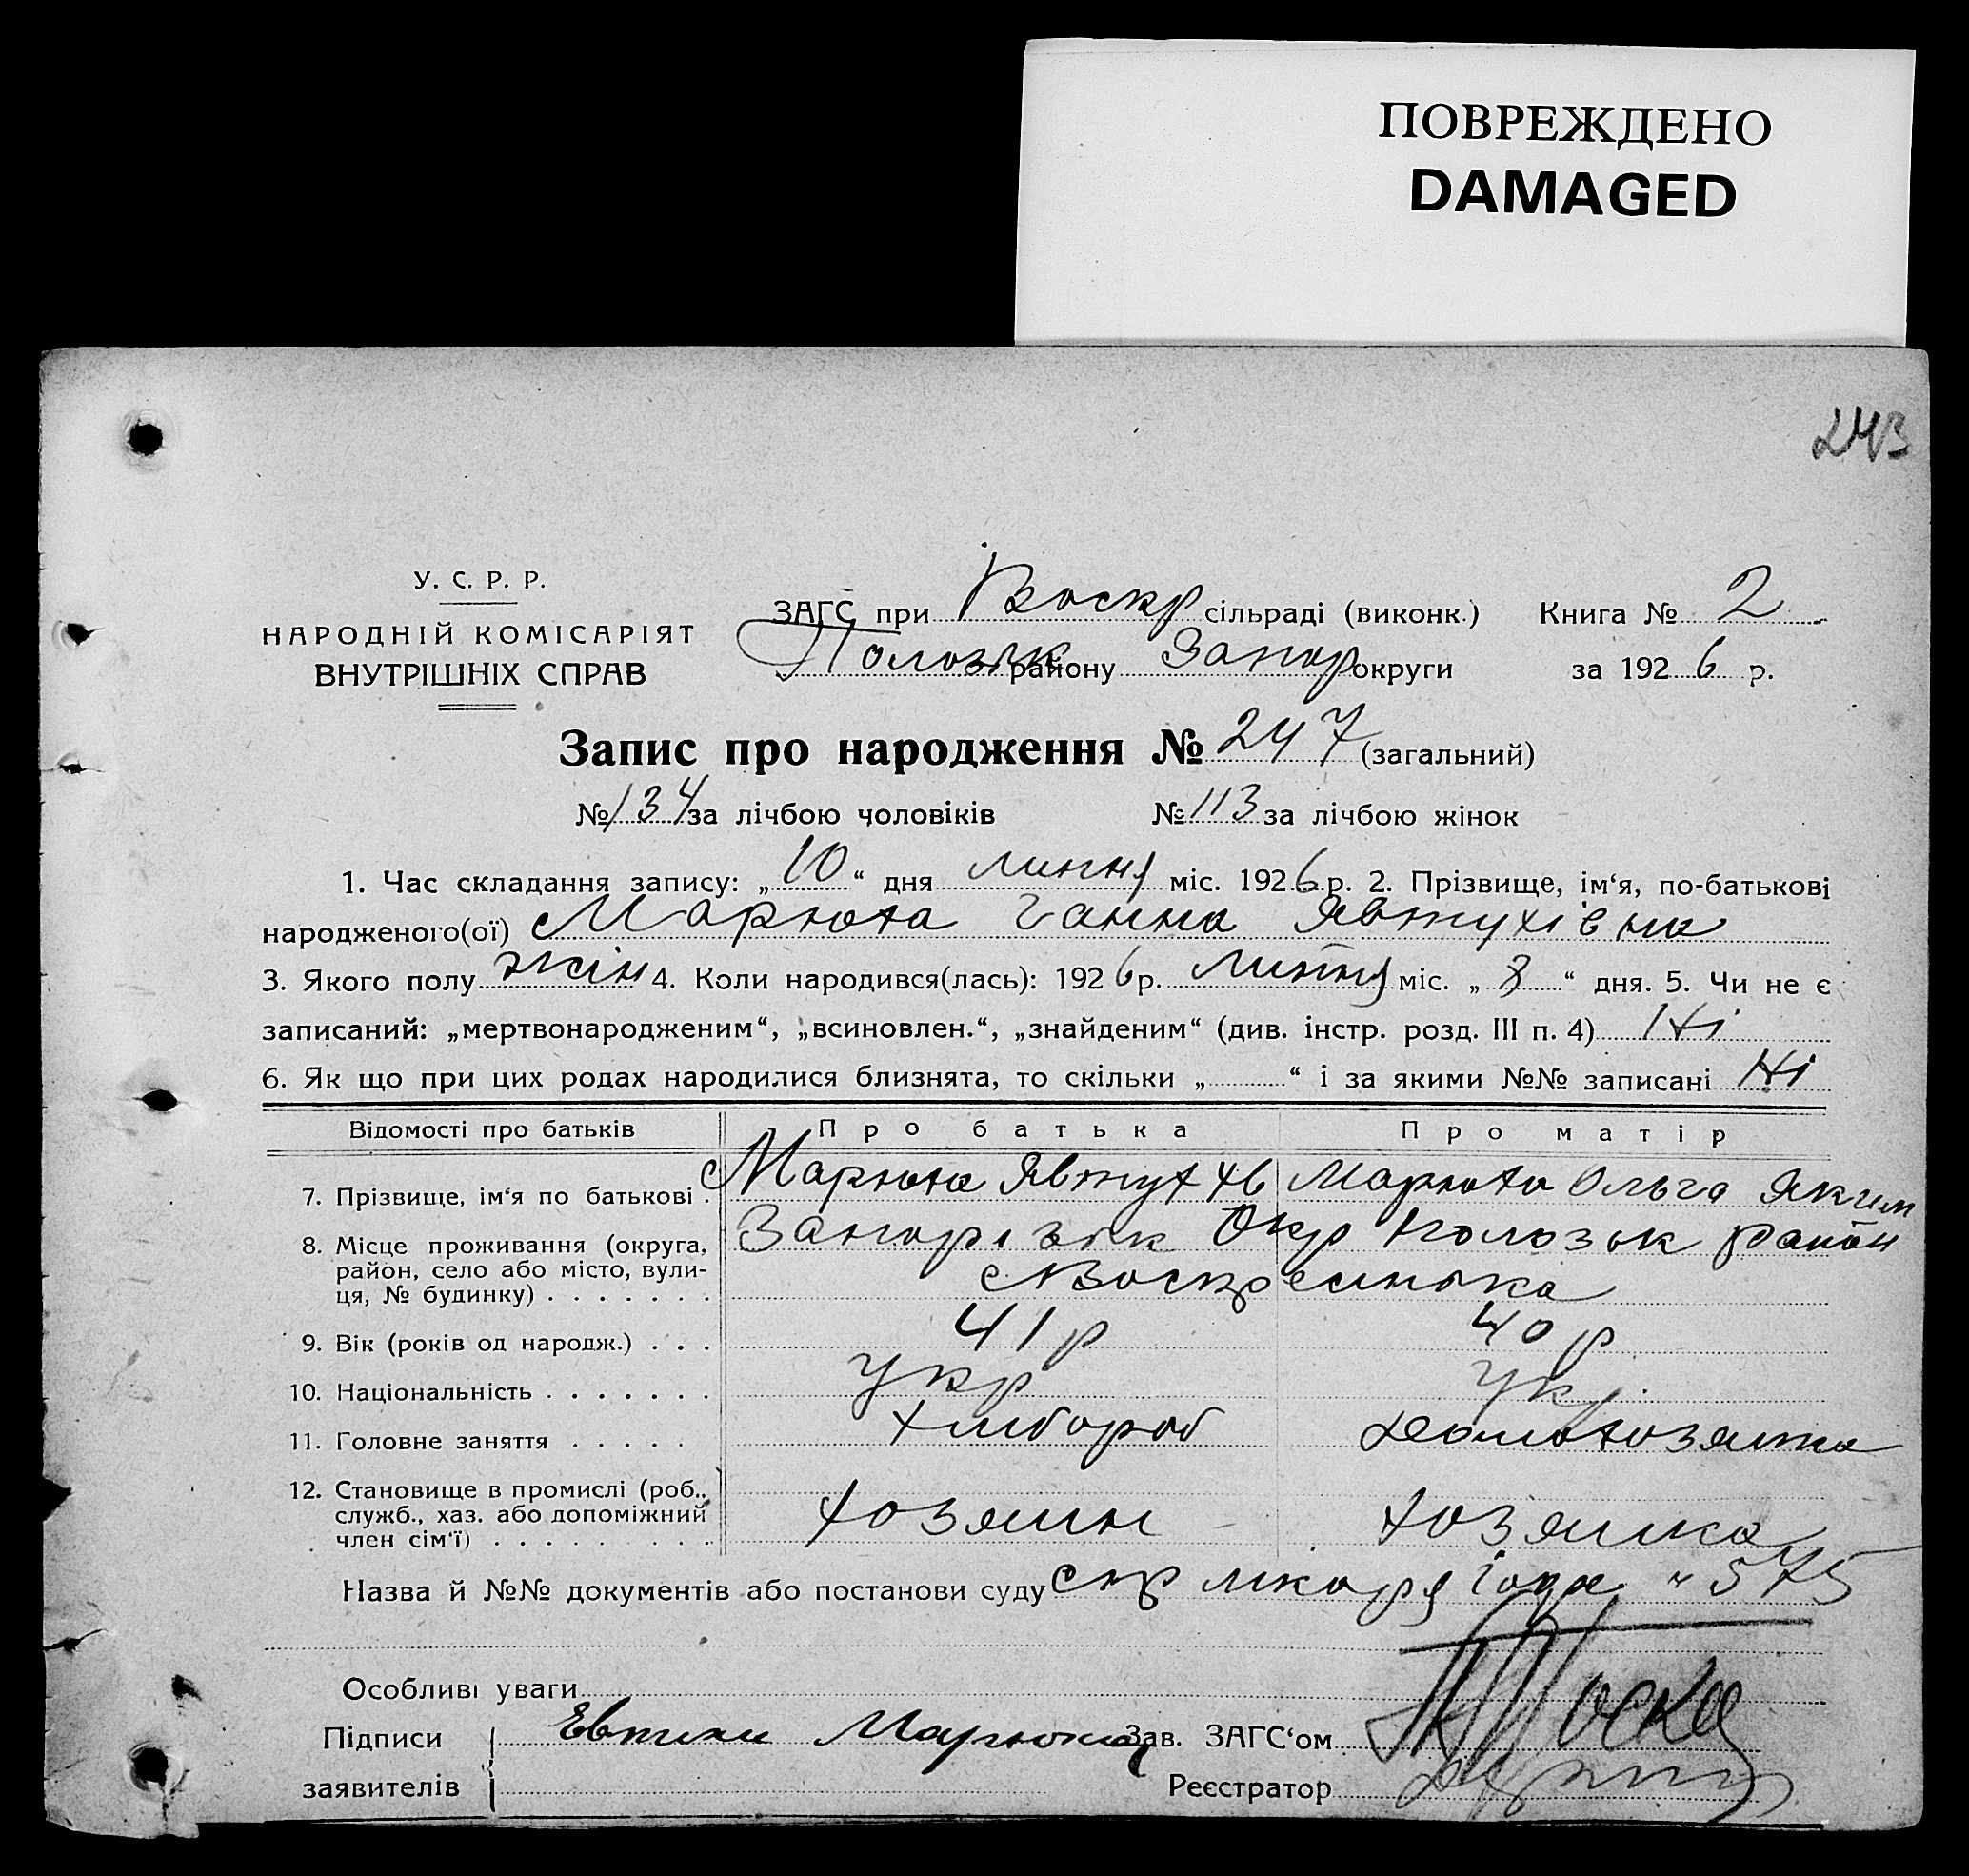 ПОВРЕЖДЕНО
DAMAGED
243
У. С. Р. Р.
НАРОДНІЙ КОМІСАРІЯТ
ВНУТРІШНІХ СПРАВ
ЗАГС при Воскр сільраді (виконк.) Книга № 2
Полозьк району Запор округи за 1926 р.
Запис про народження № 247 (загальний)
№ 134 за лічбою чоловіків № 113 за лічбою жінок
1. Час складання запису: „10“ дня липня міс. 1926 р. 2. Прізвище, ім‘я, по-батькові
народженого(ої) Марюта Ганна Явтухівна
3. Якого полу жін 4. Коли народився(лась): 1926 р. липня міс. „8“ дня. 5. Чи не є
записаний: „мертвонародженим“, „всиновлен.“, „знайденим“ (див. інстр. розд. III п. 4) Ні
6. Як що при цих родах народилися близнята, то скільки „ “ і за якими №№ записані Ні
Відомості про батьків Про батька Про матір
7. Прізвище, ім‘я по батькові . Марюта Явтух Марюта Ольга Яким
8. Місце проживання (округа, Запорізьк Окр Полозьк район
район, село або місто, вули-
ця, № будинку) . . . . . . . с Воскресенька
9. Вік (років од народж.) . . . 41 р 40 р
10. Національність . . . . . . . Укр Укр.
11. Головне заняття . . . . . Хлібороб домохозяйка
12. Становище в промислі (роб.,
служб., хаз. або допоміжний хозяин хозяйка
член сім‘ї) . . . . . . . . .
Назва й №№ документів або постанови суду спр лікаря 575
Особливі уваги
Підписи Марюта Зав. ЗАГС‘ом
заявителів Реєстратор